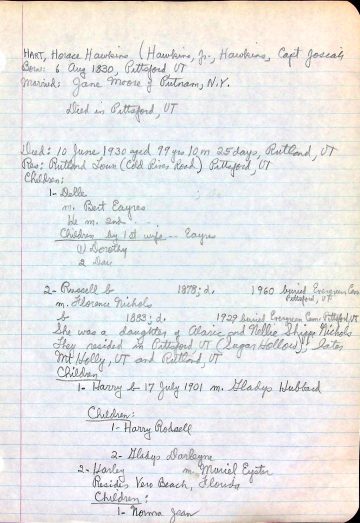 HART, Horace Hawkins (Hawkins, Jr., Hawkins, Capt Josiah
Born: 6 Aug 1830, Pittsford, VT
Married: Jane Moore of Putnam, N.Y.
Died in Pittsford, VT
Died: 10 June 1930 aged 99 yrs 10 m 25 days, Rutland, VT
Res: Rutland Town (Cold River Road) Pittsford, VT
Children:
1- Delle
m. Bert Eayres
He m. 2nd
Children by 1st wife -- Eayre
(1) Dorothy
2 Dau
2- Russell b 1878; d. 1960 buried Evergreen Cem
Pittsford, VT
m. Florence Nichols
b 1883; d. 1929 buried Evergreen Cem Pittsford VT
She was a daughter of Alanic and Nellie Nichols
They resided in Pittsford VT (Sugar Hollow); later
Mt Holly, VT and Rutland, VT
Children
1- Harry b 17 July 1901 m. Gladys Hubbard
Children:
1- Harry Rodsell
2- Gladys Darleyne
2- Harley m. Muriel Eyster
Resides Vero Beach, Florida
Children:
1- Norma Jean